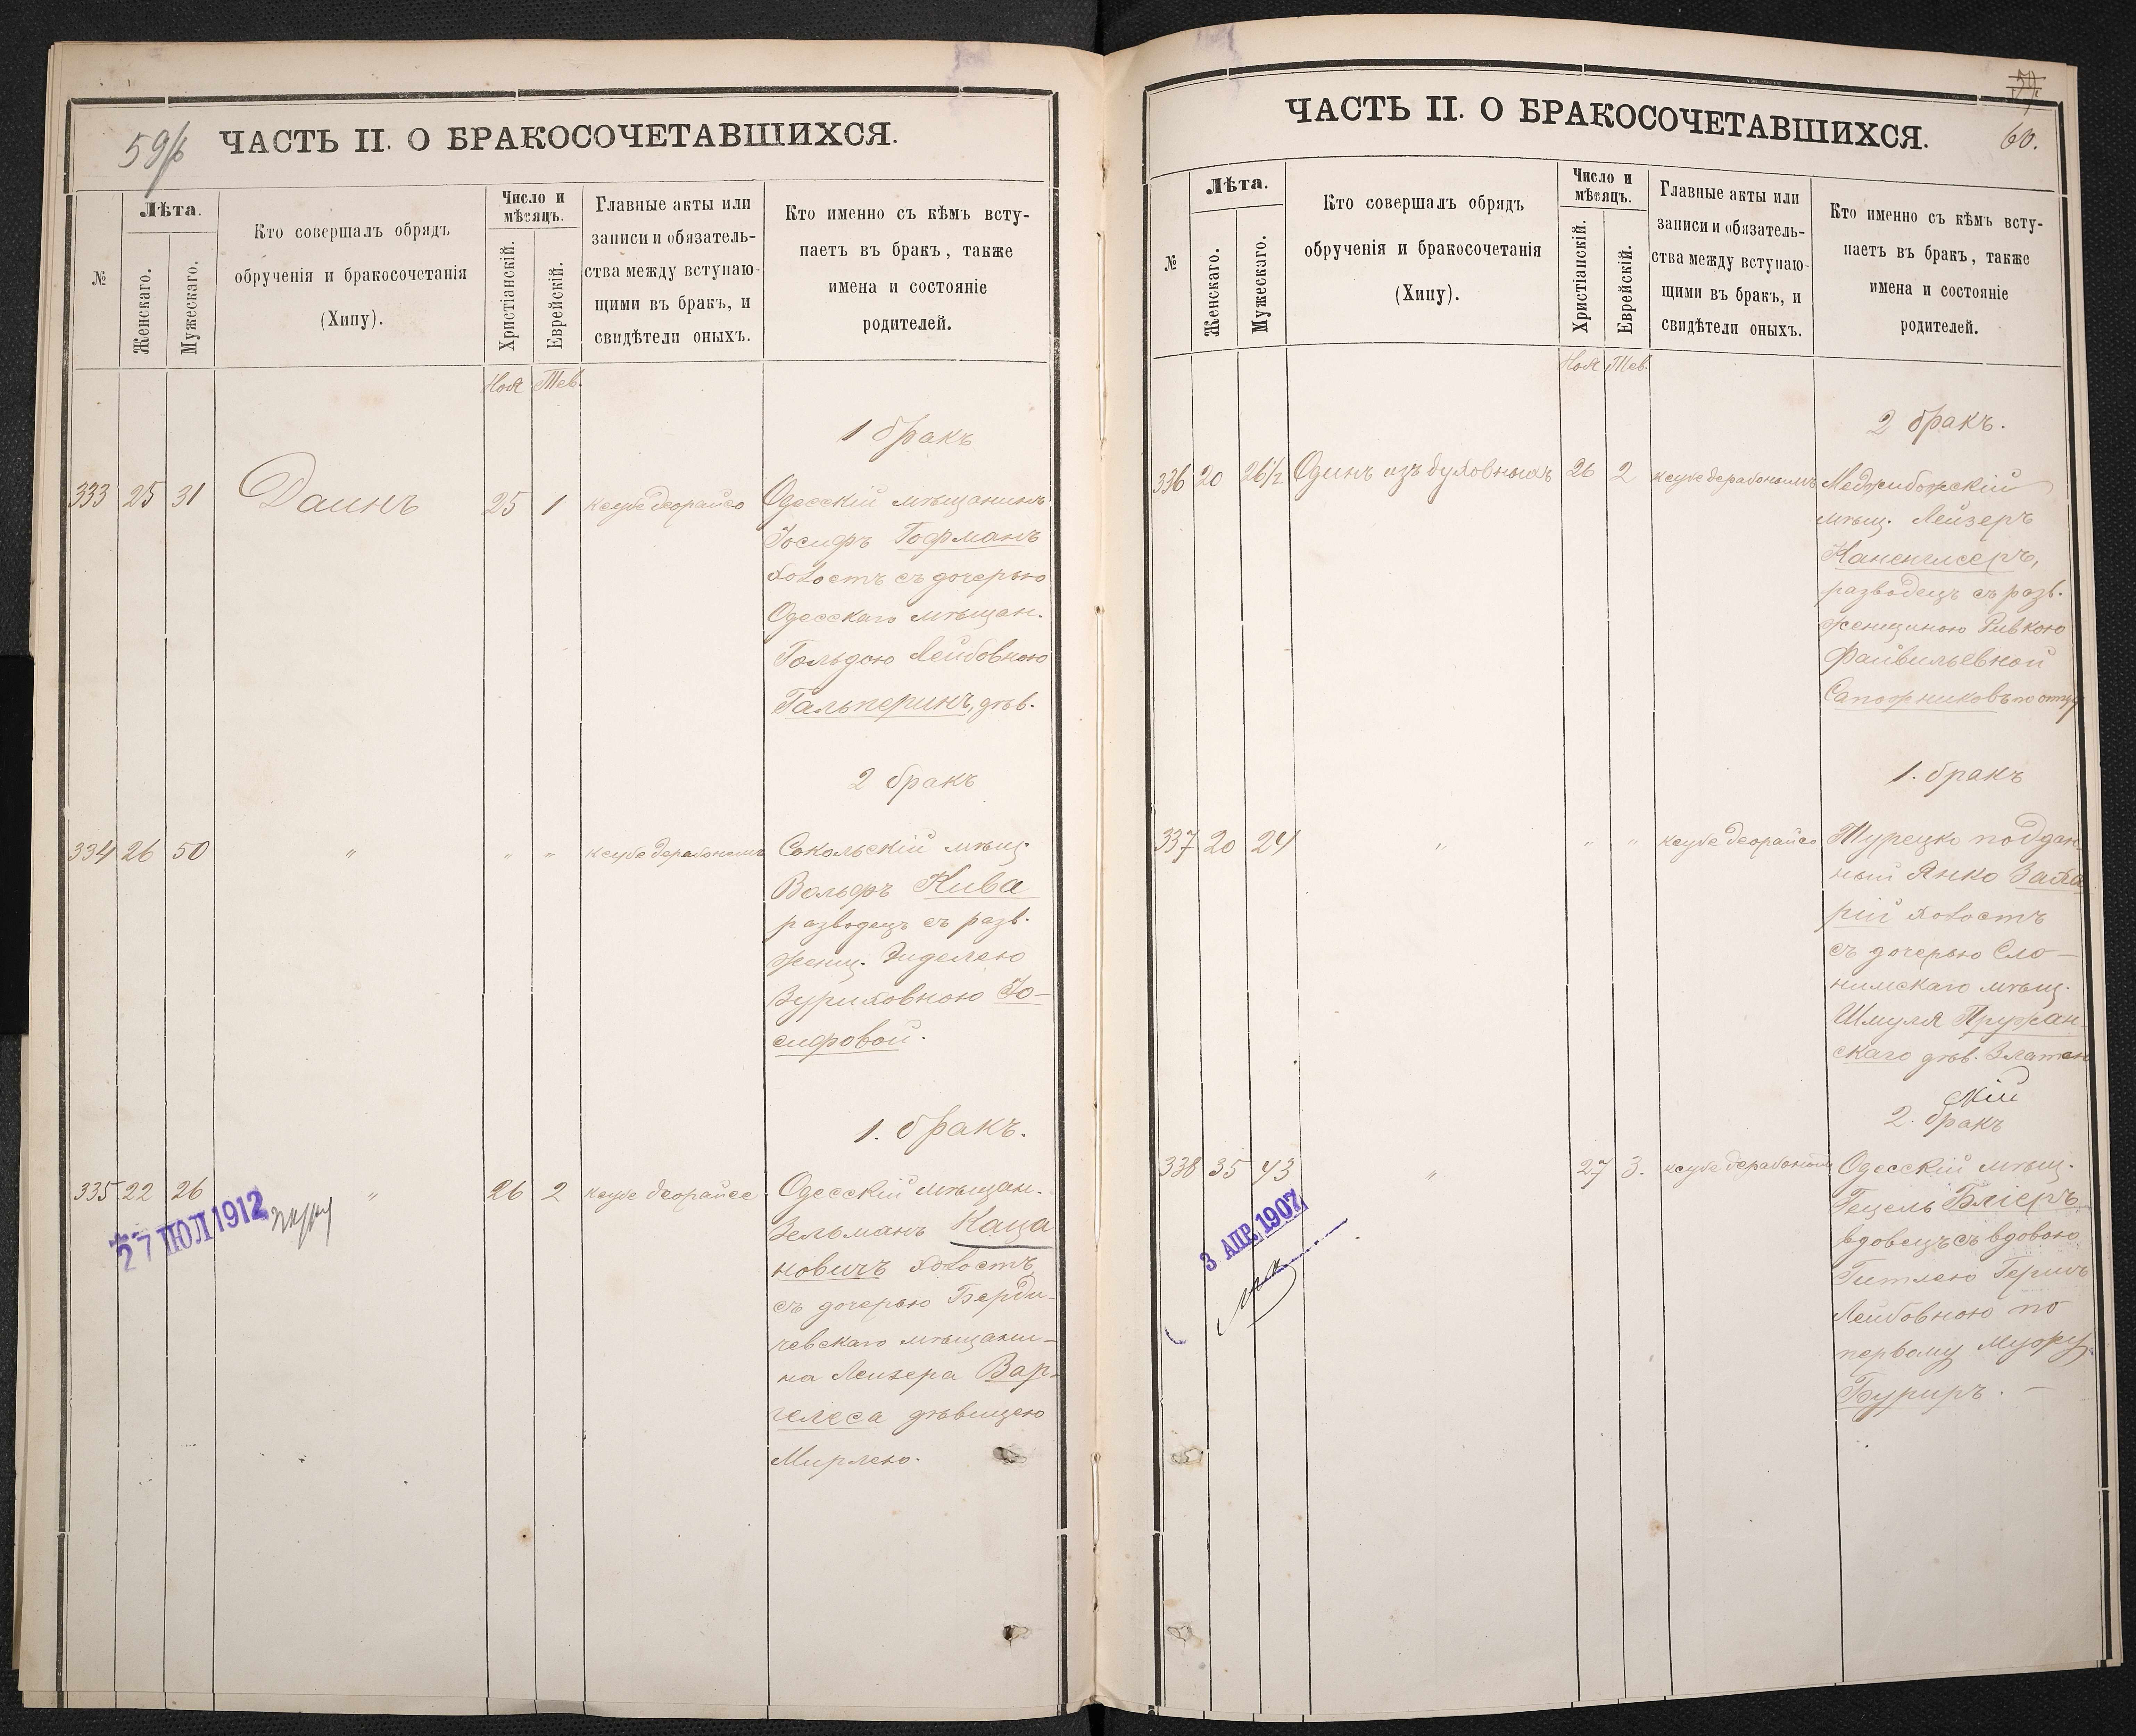 59/б
ЧАСТЬ II. О БРАКОСОЧЕТАВШИХСЯ.
№
Лѣта.
Женскаго.
Мужескаго.
Кто совершалъ обрядъ
обрученія и бракосочетанія
(Хипу).
Число и
мѣсяцъ.
Христіанскій.
Еврейскій.
Главные акты или
записи и обязатель-
ства между вступаю-
щими въ бракъ, и
свидѣтели оныхъ.
Кто именно съ кѣмъ всту-
паетъ въ бракъ, также
имена и состояніе
родителей.
Ноя Тев.
1 бракъ
333 25 31 Даинъ 25 1 ксубе деорайсо Одесскій мѣщанинъ
Іосифъ Гофманъ
холостъ съ дочерью
Одесскаго мѣщан.
Гольдою Лейбовною
Гальперинъ, дѣв.
2 бракъ
334 26 50 " " " ксубе дерабонымъ Сокольскій мѣщ.
Вольфъ Кива
разводецъ съ разв.
женщ. Эйделею
Зуриховною Іо-
сифовой.
1. бракъ.
335 22 26 " 26 2 ксубе деорайсе Одесскій мѣщан.
27 ІЮЛ 1912
Зельманъ Каца
новичъ холостъ
съ дочерью Берди-
чевскаго мѣщани-
на Лейзера Вар-
гелеса дѣвицею
Мирлею.
59.
60.
ЧАСТЬ II. О БРАКОСОЧЕТАВШИХСЯ.
№
Лѣта.
Женскаго.
Мужескаго.
Кто совершалъ обрядъ
обрученія и бракосочетанія
(Хипу).
Число и
мѣсяцъ.
Христіанскій.
Еврейскій.
Главные акты или
записи и обязатель-
ства между вступаю-
щими въ бракъ, и
свидѣтели оныхъ.
Кто именно съ кѣмъ всту-
паетъ въ бракъ, также
имена и состояніе
родителей.
Ноя Тев.
2 бракъ.
336 20 26½ Одинъ изъ духовныхъ 26 2 ксубе дерабонымъ Меджибожскій
мѣщ. Лейзеръ
Каненгисеръ,
разводецъ съ разв.
женщиною Ривкою
Файвильевной
Сапожниковъ по отцу
1. бракъ
337 20 24 " " " ксубе деорайсо Турецко поддан-
ный Янко Заха
рій холостъ
съ дочерью Сло-
нимскаго мѣщ.
Шмуля Пружан-
скаго дѣв. Златею
скій
2. бракъ
338 35 43 " 27 3. ксубе дерабонымъ Одесскій мѣщ.
3 АПР. 1907
Гецель Бліеръ
вдовецъ съ вдовою
Гитлею Гершъ
Лейбовною по
первому мужу
Буриръ. —